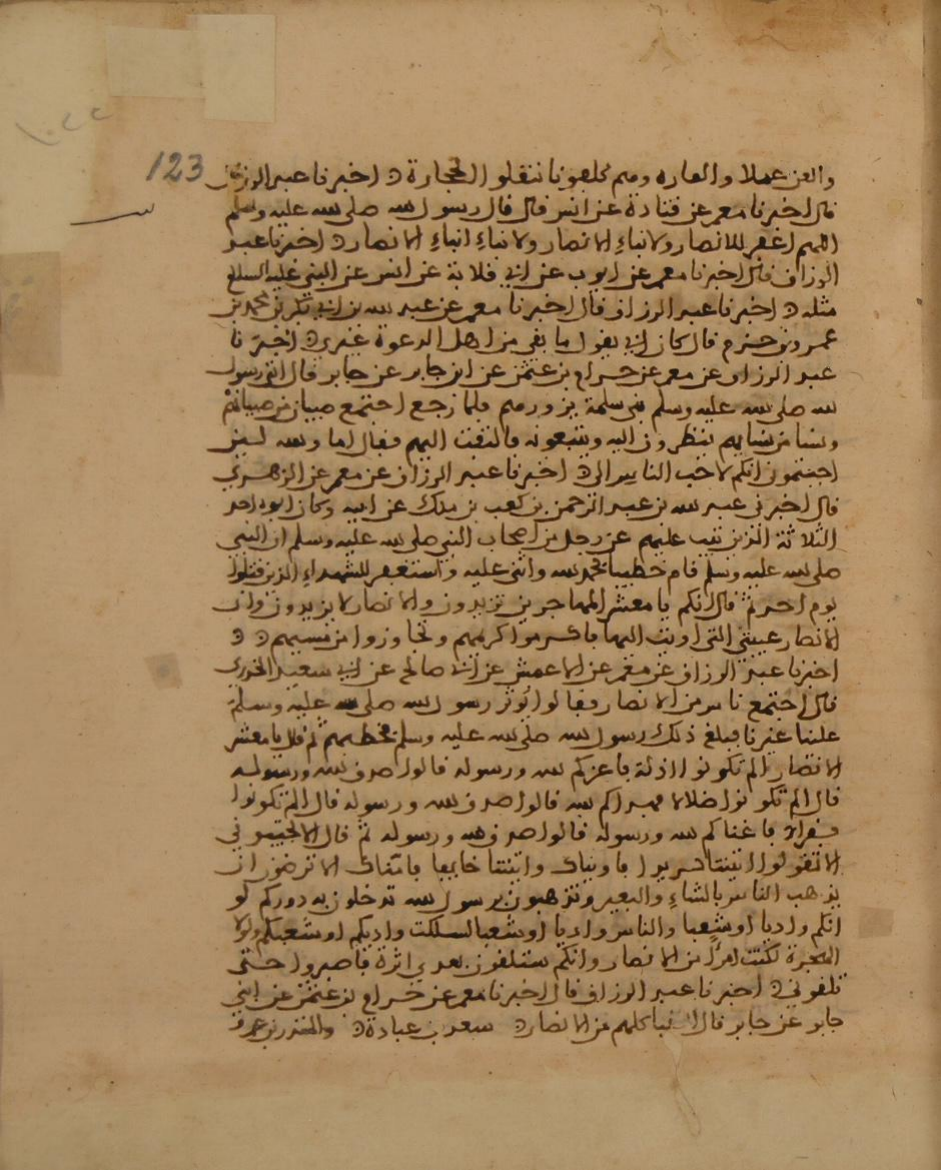 والعن عضلا والقاره وهم كلفونا ننقلوا الحجارة ه اخبرنا عبد الرزاق
قال اخبرنا معمر عن قتادة عن انس قال قال رسول الله صلى الله عليه وسلم
اللهم اغفر للانصار ولابناء الانصار ولابناء ابناء الانصار ه اخبرنا عبد
الرزاق قال اخبرنا معمر عن ايوب عن ابي قلابة عن انس عن النبي عليه السلم
مثله ه اخبرنا عبد الرزاق قال اخبرنا معمر عن عبد الله بن ابي بكر بن محمد بن
عمرو بن حزم قال كان ابي يقول ما بقي من اهل الدعوة غيري ه اخبرنا
عبد الرزاق عن معمر عن حرام بن عثمن عن ابن جابر عن جابر قال اتى رسول
الله صلى الله عليه وسلم بني سلمة يزورهم فلما رجع اجتمع صبيان من صبيانهم
ونسا من نسايهم ينظرون اليه ويتبعونه فالتفت اليهم فقال اما والله لين
احببتموني انكم لاحب الناس الي ه اخبرنا عبد الرزاق عن معمر عن الزهري
قال اخبرني عبد الله بن عبد الرحمن بن كعب بن ملك عن ابيه وكان ابوه احد
الثلاثة الذين تيب عليهم عن رجل من اصحاب النبي صلى الله عليه وسلم ان النبي
صلى الله عليه وسلم قام خطيبا فحمد الله واثنى عليه واستغفر للشهداء الذين قتلوا
يوم احد ثم قال انكم يا معشر المهاجرين تزيدون والانصار لا يزيدون وان
الانصار عيبتي التي اويت اليها فاكرموا كريمهم وتجاوزوا عن مسيهم ه ه
اخبرنا عبد الرزاق عن معمر عن الاعمش عن ابي صالح عن ابي سعيد الخدري
قال اجتمع ناس من الانصار فقالوا يوثر رسول الله صلى الله عليه وسلم
علينا غيرنا فبلغ ذلك رسول الله صلى الله عليه وسلم فخطبهم ثم قال يا معشر
الانصار الم تكونوا اذلة فاعزكم الله ورسوله قالوا صدق الله ورسوله
قال الم تكونوا ضلالا فهداكم الله قالوا صدق الله ورسوله قال الم تكونوا
فقراء فاغناكم الله ورسوله قالوا صدق الله ورسوله ثم قال الا تجيبوني
الا تقولوا اتيتنا طريدا فاويناك واتيتنا خايفا فامناك الا ترضون ان
يذهب الناس بالشاء والبعير وتذهبون برسول الله تدخلون به دوركم لو
انكم واديا او شعبا والناس واديا او شعبا لسلكت واديكم او شعبكم ولولا
الهجرة لكنت امرأ من الانصار وانكم ستلقون بعدي اثرة فاصبروا حتى
تلقوني ه اخبرنا عبد الرزاق قال اخبرنا معمر عن حرام بن عثمن عن ابني
جابر عن جابر قال النقبا كلهم من الانصار ه سعد بن عبادة ه والمنذر بن عمرو
123